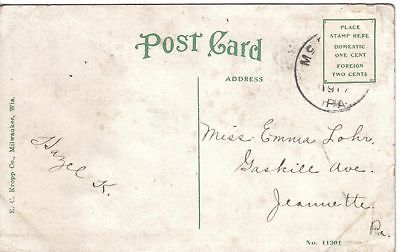 POST CARD
ADDRESS
PLACE
STAMP HERE
DOMESTIC
ONE CENT
FOREIGN
TWO CENTS
1917
PA.
Hazel K.
Miss Emma Lohr,
Gaskill Ave.
Jeannette,
Pa.
E. C. Kropp Co., Milwaukee, Wis.
No. 11301